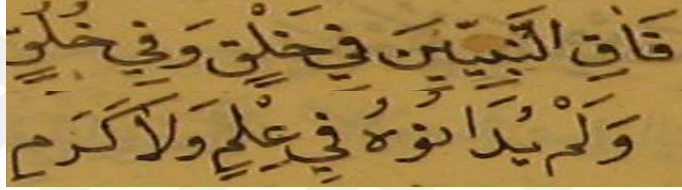 فَاقَ النَّبِيِّينَ فِي خَلْقٍ وَفِي خُلُقٍ
وَلَمْ يُدَانُوهُ فِي عِلْمٍ وَلَا كَرَمِ